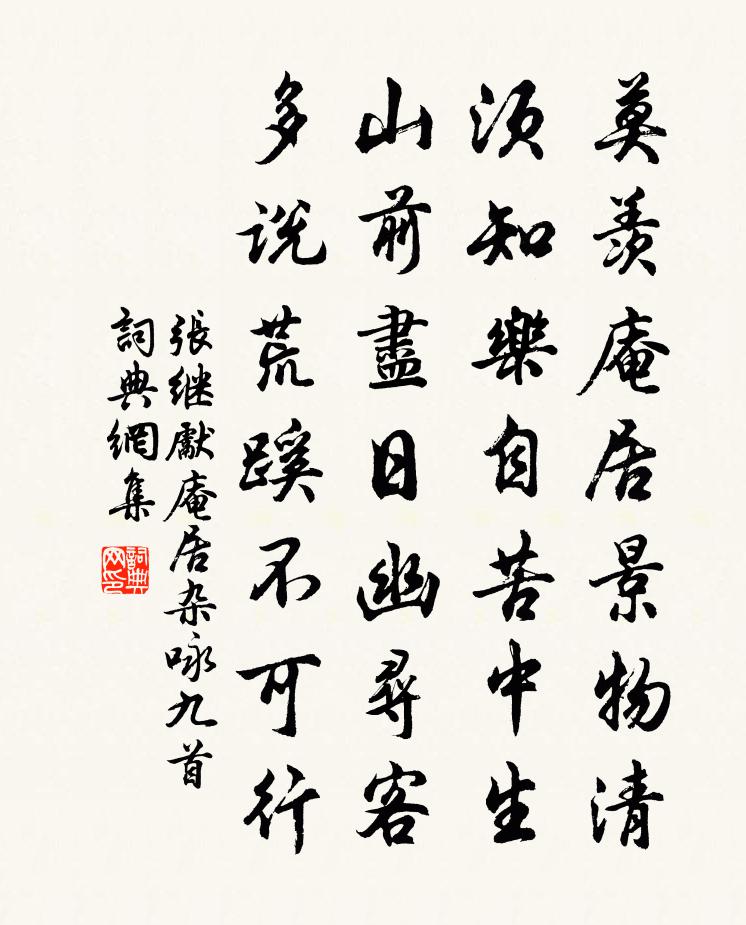 莫羨庵居景物清
須知樂自苦中生
山前盡日幽尋客
多说荒蹊不可行
張继獻庵居杂咏九首
詞典網集
詞典网印